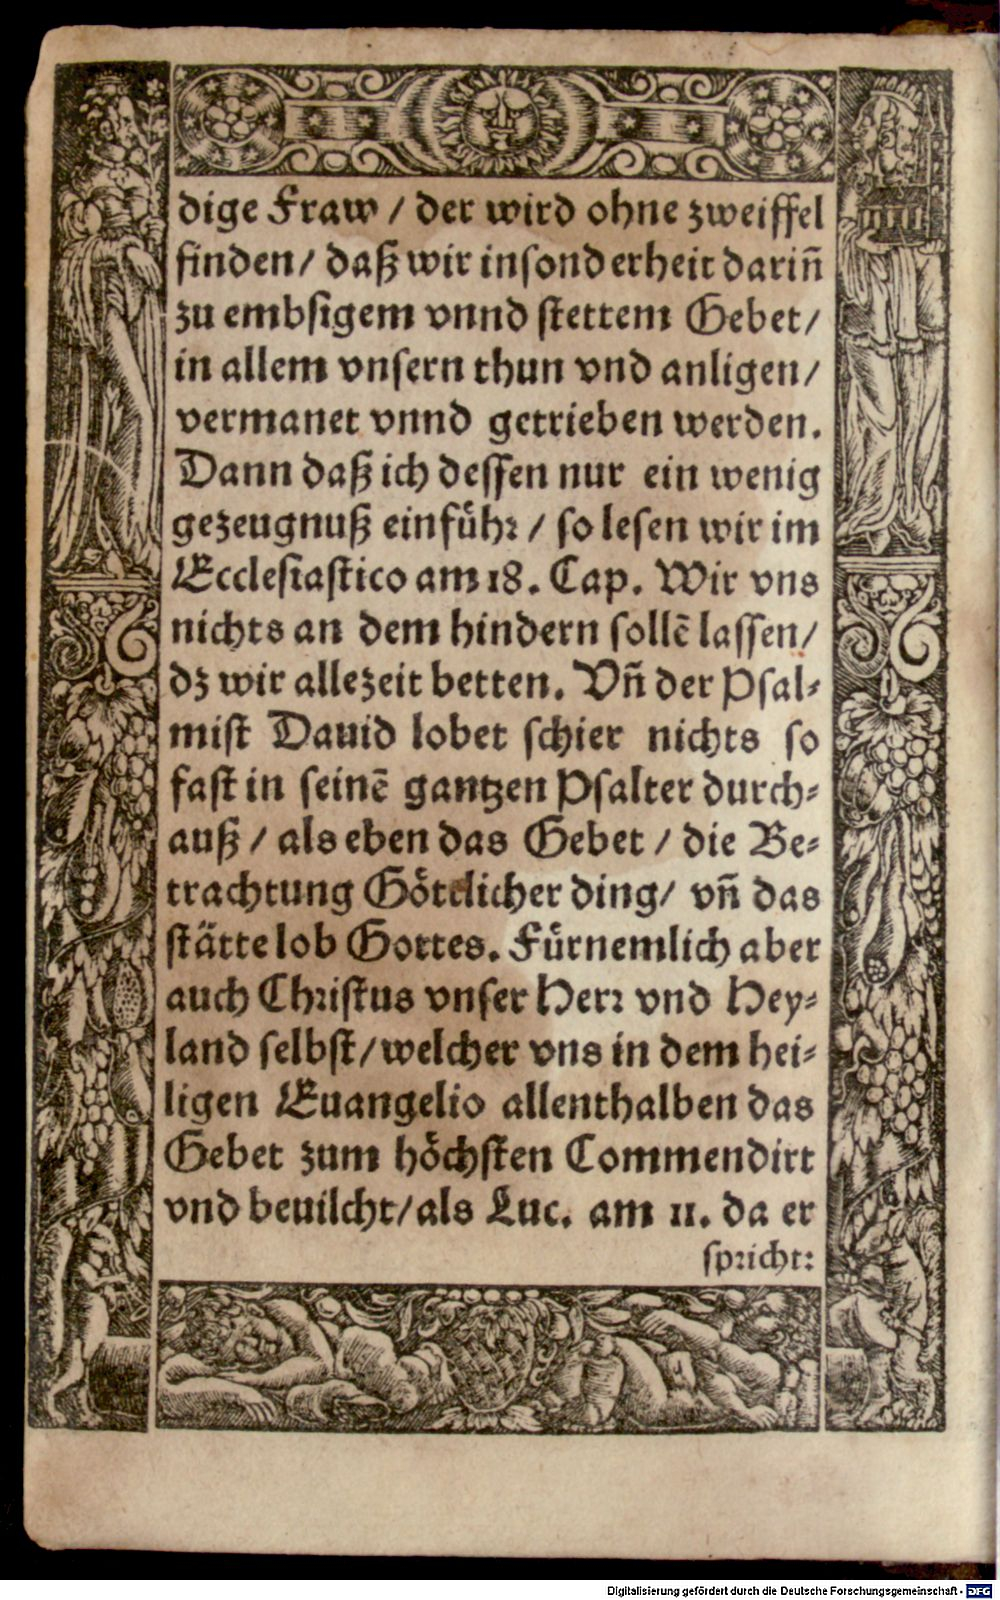 dige Fraw / der wird ohne zweiffel
finden / daß wir insonderheit dariñ
zu embsigem vnnd stettem Gebet /
in allem vnsern thun vnd anligen /
vermanet vnnd getrieben werden.
Dann daß ich dessen nur ein wenig
gezeugnuß einfuͤhr / so lesen wir im
Ecclesiastico am 18. Cap. Wir vns
nichts an dem hindern sollē lassen /
dz wir allezeit betten. Vñ der Psal-
mist Dauid lobet schier nichts so
fast in seinē gantzen Psalter durch-
auß / als eben das Gebet / die Be-
trachtung Goͤttlicher ding / vñ das
staͤtte lob Gottes. Fuͤrnemlich aber
auch Christus vnser Herr vnd Hey-
land selbst / welcher vns in dem hei-
ligen Euangelio allenthalben das
Gebet zum hoͤchsten Commendirt
vnd beuilcht / als Luc. am 11. da er
spricht:
Digitalisierung gefördert durch die Deutsche Forschungsgemeinschaft - DFG